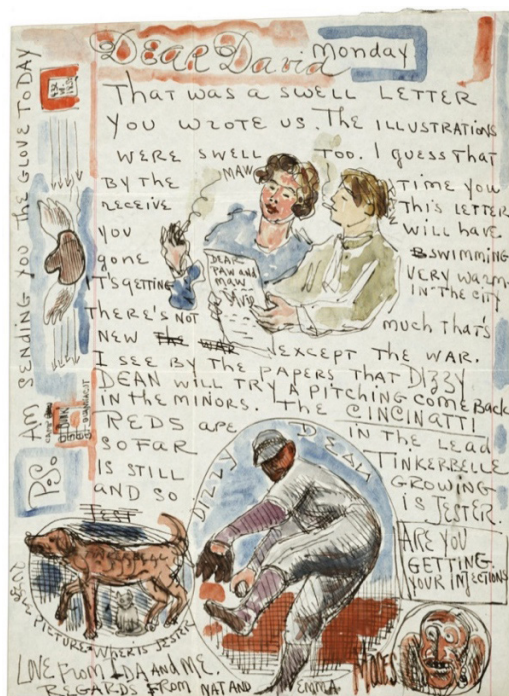 DEAR David Monday
THAT WAS A SWELL LETTER
YOU WROTE US. THE ILLUSTRATIONS
WERE SWELL TOO. I GUESS THAT
BY THE TIME YOU
RECEIVE THIS LETTER
YOU WILL HAVE
GONE SWIMMING
IT'S GETTING VERY WARM
IN THE CITY
THERE'S NOT MUCH THAT'S
NEW THE WAR EXCEPT THE WAR.
I SEE BY THE PAPERS THAT DIZZY
DEAN WILL TRY A PITCHING COME BACK
IN THE MINORS. THE CINCINATTI
REDS ARE IN THE LEAD
SO FAR TINKERBELLE
IS STILL GROWING
AND SO IS JESTER.
MAW
DEAR
PAW AND
MAW
DIZZY DEAN
ARE YOU
GETTING
YOUR INJECTIONS
TINKERBELL
PICTURE. WHERE IS JESTER
LOVE FROM IDA AND ME.
REGARDS FROM NAT AND EMMA.
MOSES
P.S.
AM SENDING YOU THE GLOVE TODAY